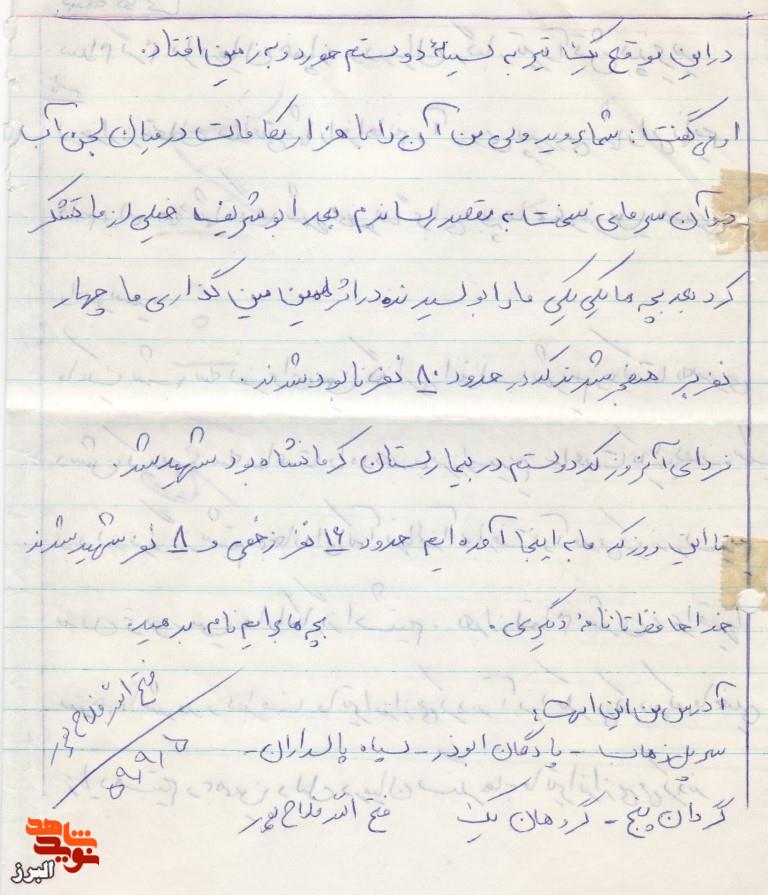 در این موقع یک تیر به سینهٔ دوستم خورد و به زمین افتاد.
او می گفت: شما بروید ولی من آن را با هزار مکافات در میان لجن آب
و آن سرمای سخت به مقصد رساندم بعد ابوشریف خیلی از ما تشکر
کرد بعد بچه ها یکی یکی ما را بوسیدند در اثر همین مین گذاری ما چهار
نفربر منفجر شدند که در حدود ۸۰ نفر نابود شدند.
فردای آنروز که دوستم در بیمارستان کرمانشاه بود شهید شد و
تا این روز که ما به اینجا آمده ایم حدود ۱۶ نفر زخمی و ۸ نفر شهید شدند
خداحافظ تا نامهٔ دیگری. بچه ها برایم نامه بدهید.
آدرس من این است:
سرپل ذهاب - پادگان ابوذر - سپاه پاسداران -
گردان پنج - گروهان یک فتح الله فلاح پور
فتح الله فلاح پور
۵۹/۹/۶
شاهد
نوید
البرز